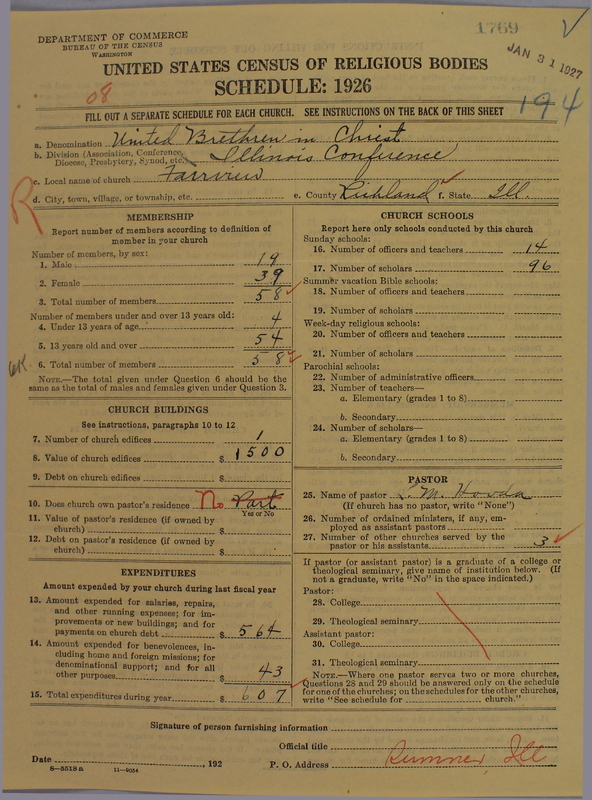 1769
DEPARTMENT OF COMMERCE
BUREAU OF THE CENSUS
WASHINGTON
JAN 31 1927
UNITED STATES CENSUS OF RELIGIOUS BODIES
SCHEDULE: 1926
08
194
FILL OUT A SEPARATE SCHEDULE FOR EACH CHURCH. SEE INSTRUCTIONS ON THE BACK OF THIS SHEET
a. Denomination United Brethren in Christ
b. Division (Association, Conference, Diocese, Presbytery, Synod, etc.) Illinois Conference
c. Local name of church Fairview
d. City, town, village, or township, etc. e. County Richland f. State Ill.
R
MEMBERSHIP
Report number of members according to definition of
member in your church
Number of members, by sex:
1. Male 19
2. Female 39
3. Total number of members 58
Number of members under and over 13 years old:
4. Under 13 years of age 4
5. 13 years old and over 54
6. Total number of members 58
NOTE.—The total given under Question 6 should be
same as the total of males and females given under Question 3.
CHURCH BUILDINGS
See instructions, paragraphs 10 to 12
7. Number of church edifices 1
8. Value of church edifices $ 1500
9. Debt on church edifices $
10. Does church own pastor's residence No Part
Yes or No
11. Value of pastor's residence (if owned by
church) $
12. Debt on pastor's residence (if owned by
church) $
EXPENDITURES
Amount expended by your church during last fiscal year
13. Amount expended for salaries, repairs,
and other running expenses; for im-
provements or new buildings; and for
payments on church debt $ 564
14. Amount expended for benevolences, in-
cluding home and foreign missions; for
denominational support; and for all
other purposes $ 43
15. Total expenditures during year $ 607
CHURCH SCHOOLS
Report here only schools conducted by this church
Sunday schools:
16. Number of officers and teachers 14
17. Number of scholars 96
Summer vacation Bible schools:
18. Number of officers and teachers
19. Number of scholars
Week-day religious schools:
20. Number of officers and teachers
21. Number of scholars
Parochial schools:
22. Number of administrative officers
23. Number of teachers—
a. Elementary (grades 1 to 8)
b. Secondary
24. Number of scholars—
a. Elementary (grades 1 to 8)
b. Secondary
PASTOR
25. Name of pastor M.
(If church has no pastor, write "None")
26. Number of ordained ministers, if any, em-
ployed as assistant pastors
27. Number of other churches served by the
pastor or his assistants 3
If pastor (or assistant pastor) is a graduate of a college or
theological seminary, give name of institution below. (If
not a graduate, write "No" in the space indicated.)
Pastor:
28. College
29. Theological seminary
Assistant pastor:
30. College
31. Theological seminary
NOTE.—Where one pastor serves two or more churches,
Questions 28 and 29 should be answered only on the schedule
for one of the churches; on the schedules for the other churches,
write "See schedule for church."
Signature of person furnishing information
Official title
Date , 192 P. O. Address Sumner, Ill
8—5518a 11—9054